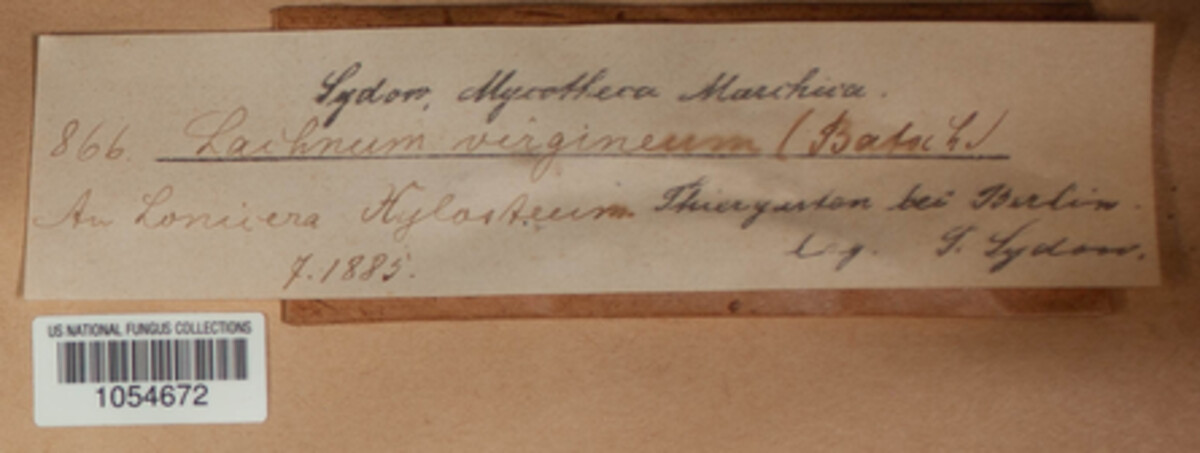 Sydow, Mycotheca Marchica.
866. Lachnum virgineum (Batsch.)
An Lonicera Xylosteum Thiergarten bei Berlin.
7. 1885. leg. P. Sydow.
US NATIONAL FUNGUS COLLECTIONS
1054672